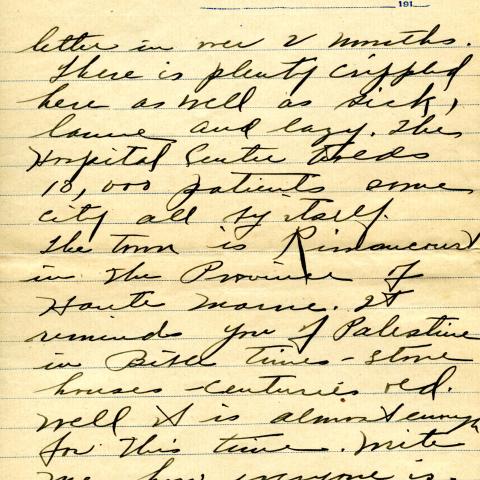 191
letter in over 2 months.
There is plenty crippled
here as well as sick,
lame and lazy. This
Hospital Center holds
10,000 patients some
city all by itself.
The town is Rimaucourt
in the Province of
Haute Marne. It
reminds you of Palestine
in Bible times - stone
houses - centuries old.
Well it is almost enough
for this time. Write
me how everyone is